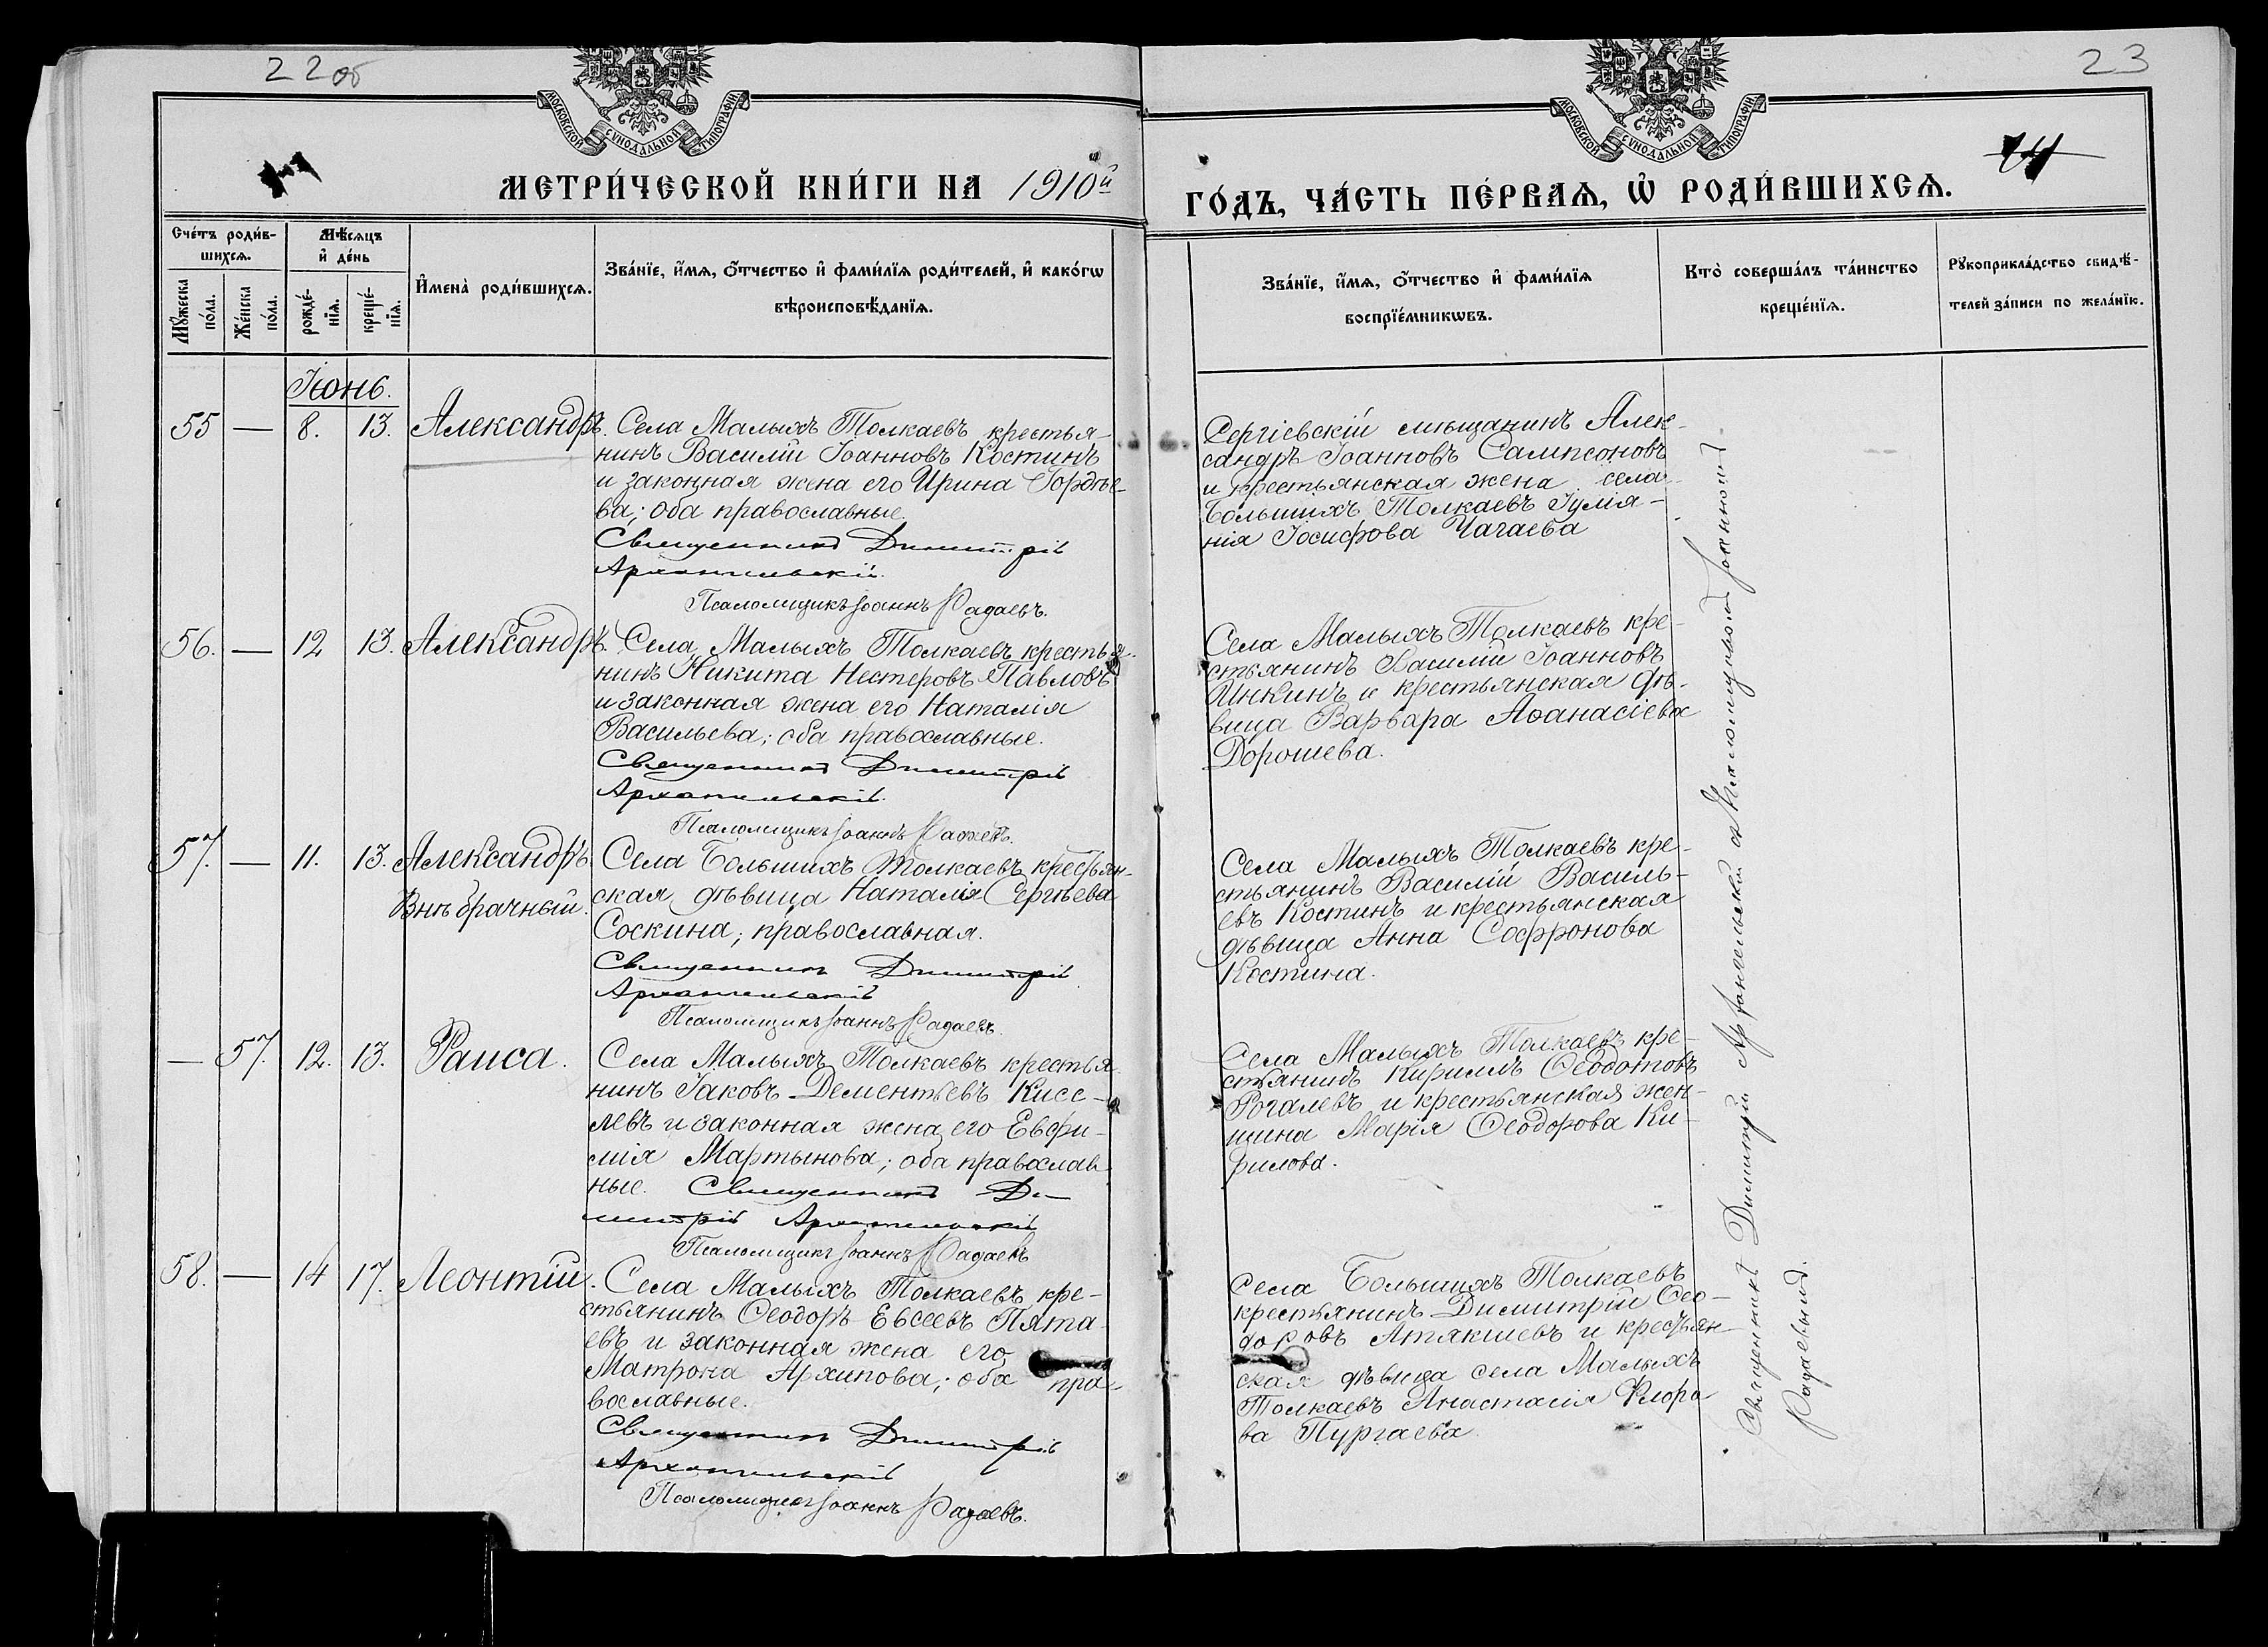 22 об
23
МОСКОВСКОЙ СѴНОДАЛЬНОЙ ТИПОГРАФІИ.
МОСКОВСКОЙ СѴНОДАЛЬНОЙ ТИПОГРАФІИ.
МЕТРИ́ЧЕСКОЙ КНИ́ГИ НА 1910й
ГО́ДЪ, ЧА́СТЬ ПЕ́РВАѦ, Ѡ҆ РОДИ́ВШИХСѦ.
Сче́тъ роди́в-
шихсѧ.
Мꙋ́жеска
по́ла.
Же́нска
по́ла.
Мѣ́сѧцъ
и҆ де́нь
рожде́-
нїѧ.
креще́-
нїѧ.
И҆мена̀ роди́вшихсѧ.
Зва́нїе, и҆́мѧ, ѻ҆́тчество и҆ фами́лїѧ роди́телей, и҆ како́гѡ
вѣроисповѣ́данїѧ.
Зва́нїе, и҆́мѧ, ѻ҆́тчество и҆ фами́лїѧ
воспрїе́мникѡвъ.
Кто̀ соверша́лъ та́инство
креще́нїѧ.
Рꙋкоприкла́дство свидѣ́-
телей за́писи по жела́нїю.
Іюнь.
55 — 8. 13. Александръ.
Села Малыхъ Толкаевъ крестья-
нинъ Василій Іоанновъ Костинъ
и законная жена его Ирина Гордѣе-
ва; оба православные.
Священникъ Димитрій
Архангельскій.
Псаломщикъ Іоаннъ Радаевъ.
Сергіевскій мѣщанинъ Алек-
сандръ Іоанновъ Сампсоновъ
и крестьянская жена села
Большихъ Толкаевъ Іулія-
нія Іосифова Чагаева
56. — 12 13. Александръ.
Села Малыхъ Толкаевъ крестья-
нинъ Никита Нестеровъ Павловъ
и законная жена его Наталія
Васильева; оба православные.
Священникъ Димитрій
Архангельскій.
Псаломщикъ Іоаннъ Радаевъ.
Села Малыхъ Толкаевъ кре-
стьянинъ Василій Іоанновъ
Инкинъ и крестьянская дѣ-
вица Варвара Аѳанасіева
Дорошева.
57. — 11. 13. Александръ
Внѣбрачный.
Села Большихъ Толкаевъ крестьян-
ская дѣвица Наталія Сергѣева
Соскина; православная.
Священникъ Димитрій
Архангельскій
Псаломщикъ Іоаннъ Радаевъ.
Села Малыхъ Толкаевъ кре-
стьянинъ Василій Василь-
евъ Костинъ и крестьянская
дѣвица Анна Софронова
Костина.
— 57. 12. 13. Раиса.
Села Малыхъ Толкаевъ крестья-
нинъ Іаковъ Дементьевъ Кисе-
левъ и законная жена его Евфи-
мія Мартынова; оба православ-
ные. Священникъ Ди-
митрій Архангельскій
Псаломщикъ Іоаннъ Радаевъ
Села Малыхъ Толкаевъ кре-
стьянинъ Кириллъ Ѳеодотовъ
Рогалевъ и крестьянская жен-
щина Марія Ѳеодорова Ки-
рилова.
58. — 14 17. Леонтій.
Села Малыхъ Толкаевъ кре-
стьянинъ Ѳеодоръ Евсеевъ Пята-
евъ и законная жена его
Матрона Архипова; оба пра-
вославные.
Священникъ Димитрій
Архангельскій
Псаломщикъ Іоаннъ Радаевъ.
Села Большихъ Толкаевъ
крестьянинъ Димитрій Ѳео-
доровъ Атякшевъ и крестьян-
ская дѣвица села Малыхъ
Толкаевъ Анастасія Флоро-
ва Пургаева
Священникъ Димитрій Архангельскій съ Псаломщикомъ Іоанномъ
Радаевымъ.